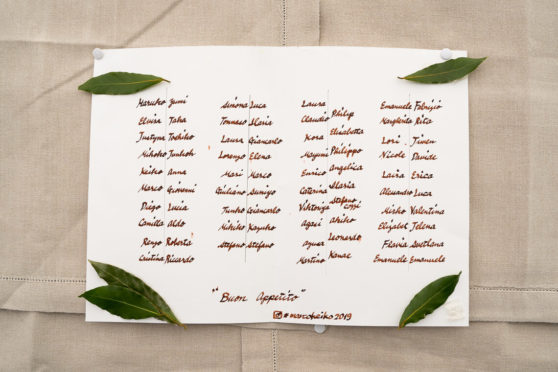 Yumi
Elvira
Justyna Toshiko
Mihoko
Keiko Anna
Marco Giovanni
Diego Lucia
Camilla Aldo
Renzo Roberta
Cristina Riccardo
Simona Luca
Tommaso Ilaria
Laura Giancarlo
Lorenzo Elena
Mari Marco
Giuliano Sumiyo
Giancarlo
Kazuko
Stefano Stefano
Laura
Claudio Philip
Kora Elisabetta
Mayumi Philippo
Enrico Angelica
Caterina Ilaria
Viktoriya Stefano
Cozzi
Akiko
Leonardo
Martino Kanae
Emanuele Fabrizio
Margherita Rita
Lori
Nicole Davide
Laura Erica
Alessandro Luca
Mirko Valentina
Elizabet Jelena
Flavia Svetlana
Emanuele Emanuele
"Buon Appetito"
#marcokeiko2019